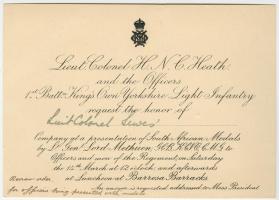 Lieut. Colonel H. N. C. Heath
and the Officers
1st Battn. King's Own Yorkshire Light Infantry
request the honor of
Lieut Colonel
Company at a presentation of South African Medals
by Lt. Genl. Lord Methuen, G.C.B. K.C.V.O. C.M.G to
Officers and men of the Regiment, on Saturday
the 14th March at 12 o'clock and afterwards
at Luncheon at Barrosa Barracks
for officers being presented with medals
An answer is requested addressed to Mess President